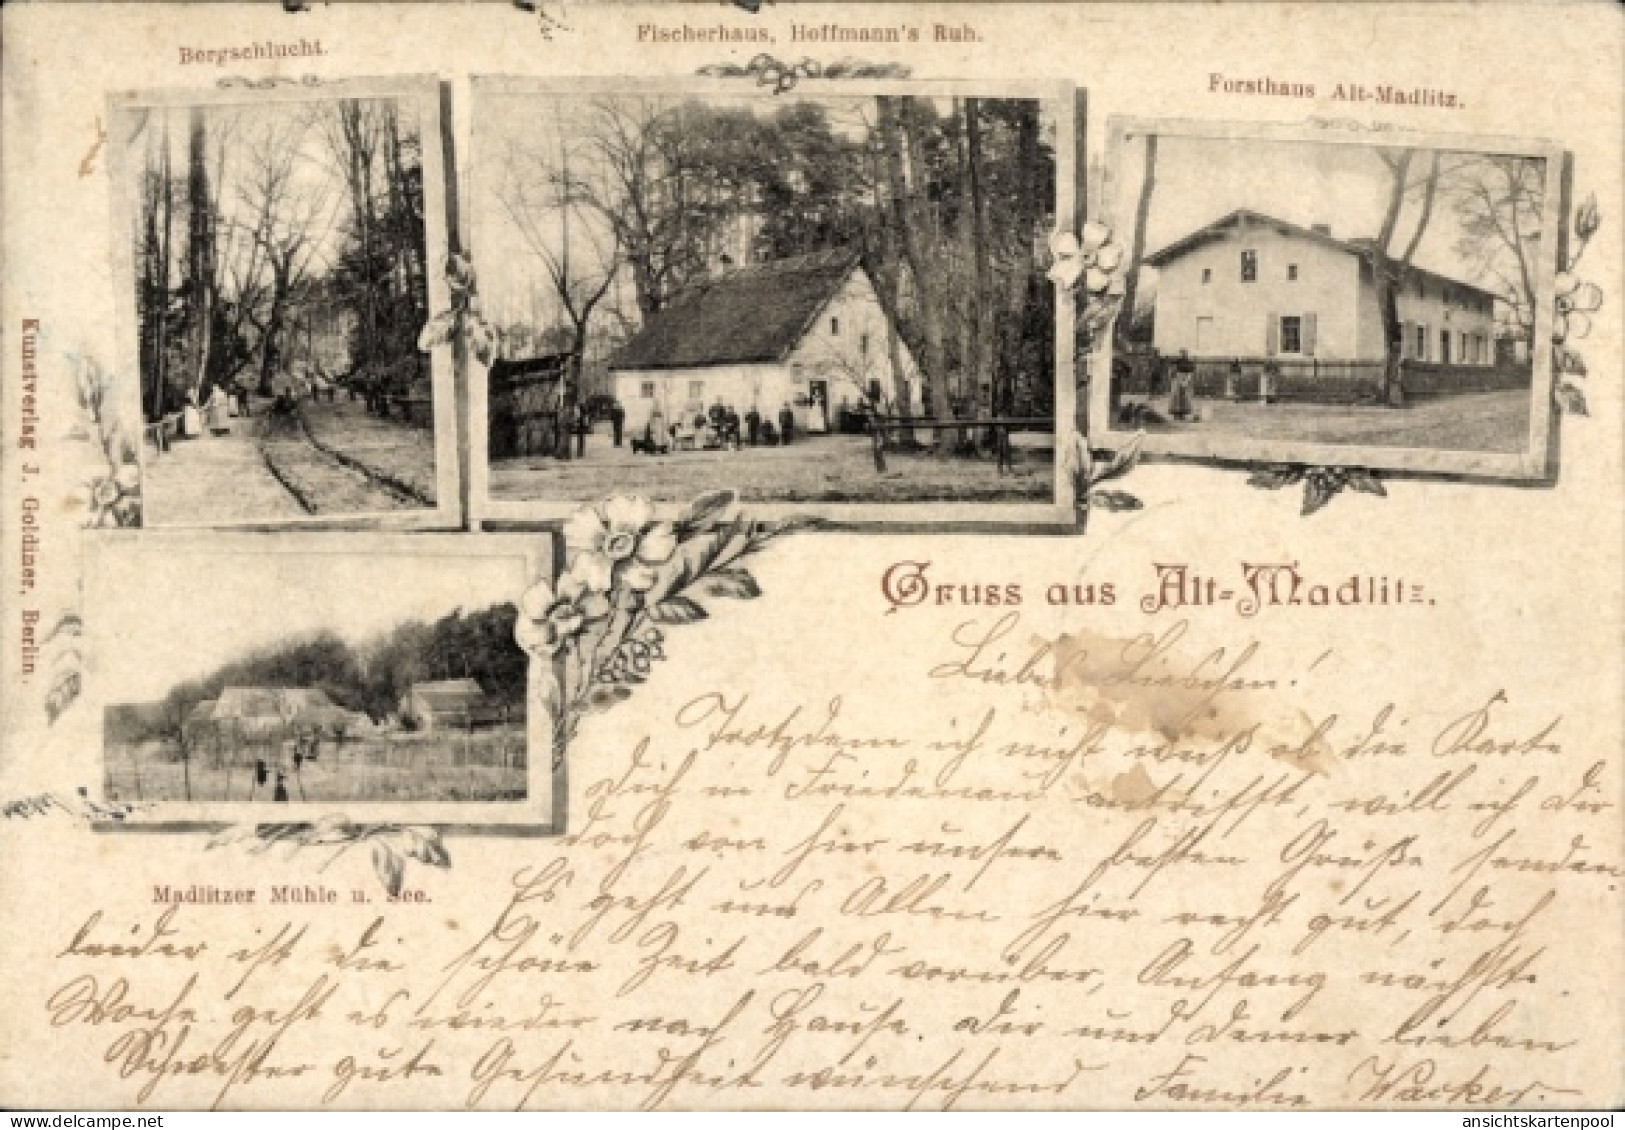 Bergschlucht.
Fischerhaus, Hoffmann's Ruh.
Forsthaus Alt-Madlitz.
Kunstverlag J. Goldiner, Berlin.
Gruss aus Alt-Madlitz.
Madlitzer Mühle u. See.
Liebes Lieschen!
Trotzdem ich nicht weiß ob die Karte
Dich in Friedenau antrifft, will ich Dir
doch von hier unsere besten Grüße senden.
Es geht uns Allen hier recht gut, doch
leider ist die schöne Zeit bald vorüber, Anfang nächste
Woche geht es wieder nach Hause. Dir und Deiner lieben
Schwester gute Gesundheit wünschend Familie Wacker.
ansichtskartenpool